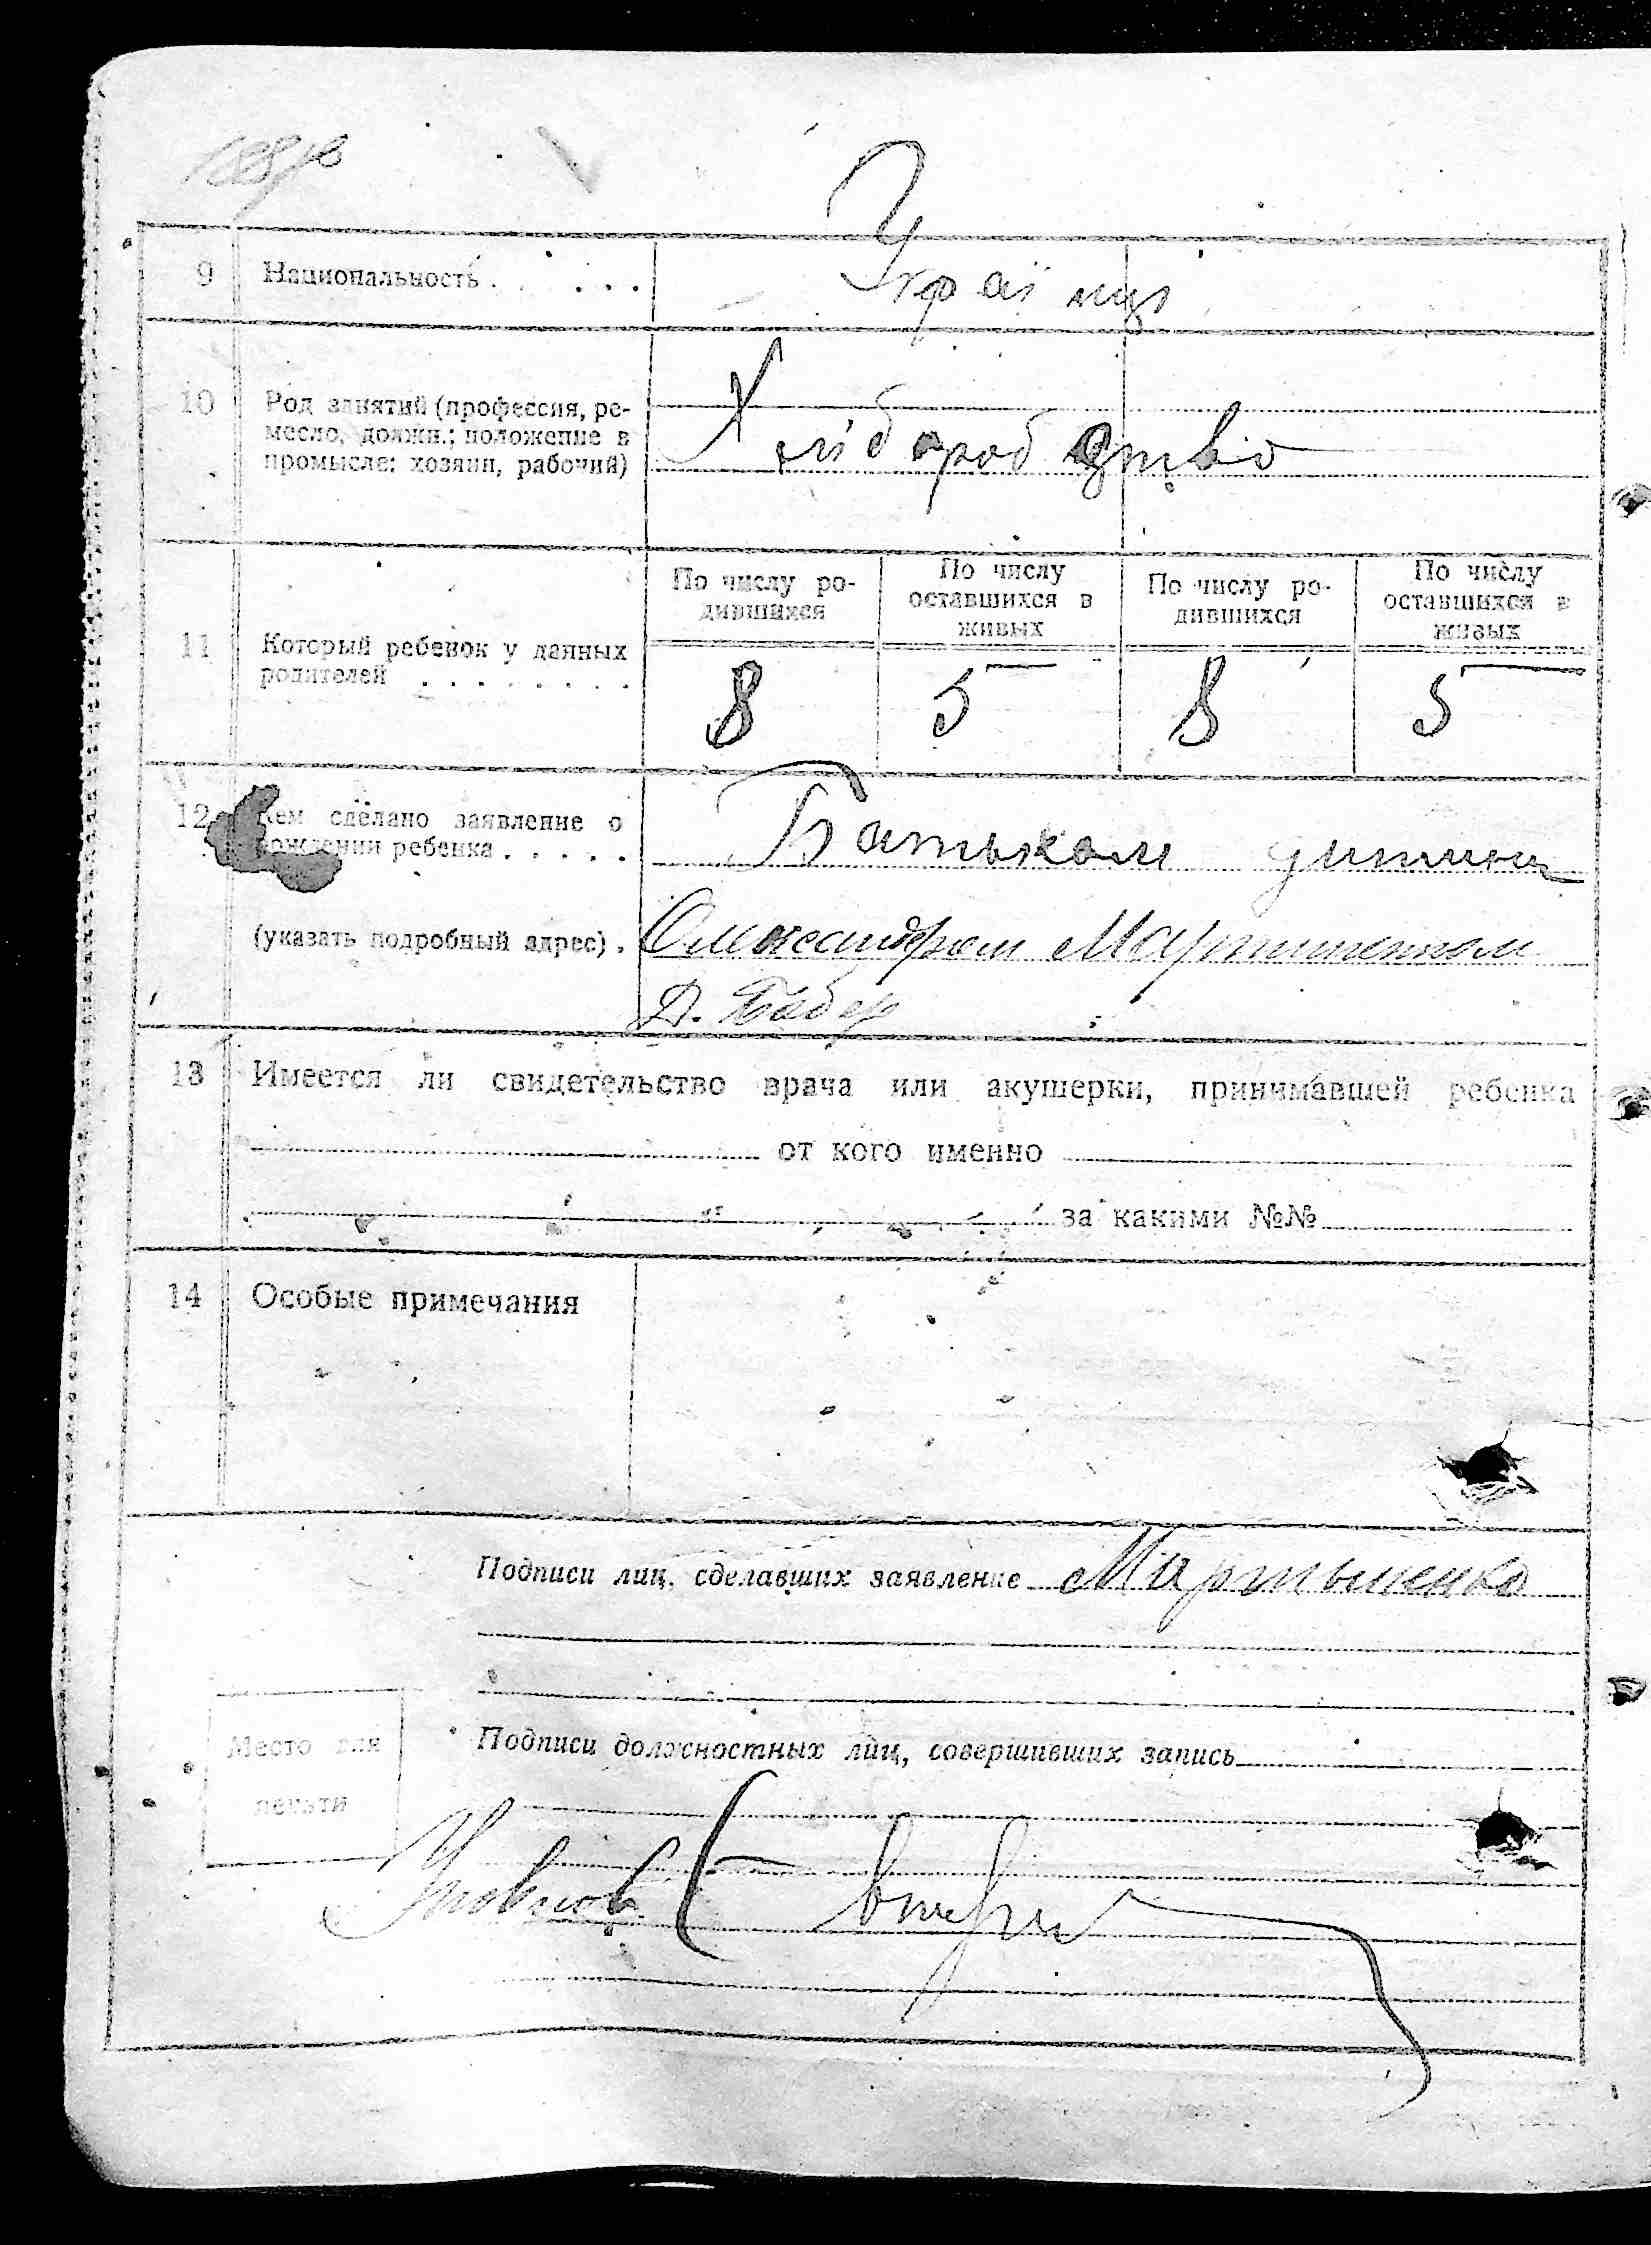 9 Национальность . . . . . . Українці
10 Род занятий (профессия, ре-
месло, должн.; положение в
промысле: хозяин, рабочий)
Хліборобство
По числу ро-
дившихся
По числу
оставшихся в
живых
По числу ро-
дившихся
По числу
оставшихся в
живых
11 Который ребенок у данных
родителей . . . . . . . .
8 5 8 5
12 Кем сделано заявление о
рождении ребенка . . . . .
Батьком дитини
(указать подробный адрес) . Олександром Мартиненком
13 Имеется ли свидетельство врача или акушерки, принимавшей ребенка
от кого именно
за какими №№
14 Особые примечания
Подписи лиц, сделавших заявление Мартыненко
Место для
печати
Подписи должностных лиц, совершивших запись